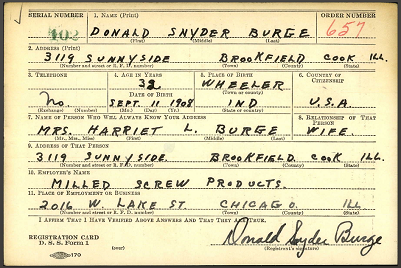 SERIAL NUMBER 1. NAME (Print) ORDER NUMBER
102 DONALD SNYDER BURGE 657
(First) (Middle) (Last)
2. ADDRESS (Print)
3119 SUNNYSIDE BROOKFIELD COOK ILL.
(Number and street or R. F. D. number) (Town) (County) (State)
3. TELEPHONE 4. AGE IN YEARS 5. PLACE OF BIRTH 6. COUNTRY OF CITIZENSHIP
32 WHEELER
DATE OF BIRTH (Town or county)
No. SEPT. 11 1908 IND U.S.A.
(Exchange) (Number) (Mo.) (Day) (Yr.) (State or country)
7. NAME OF PERSON WHO WILL ALWAYS KNOW YOUR ADDRESS 8. RELATIONSHIP OF THAT PERSON
MRS. HARRIET L. BURGE WIFE.
(Mr., Mrs., Miss) (First) (Middle) (Last)
9. ADDRESS OF THAT PERSON
3119 SUNNYSIDE. BROOKFIELD, COOK ILL.
(Number and street or R. F. D. number) (Town) (County) (State)
10. EMPLOYER'S NAME
MILLED SCREW PRODUCTS.
11. PLACE OF EMPLOYMENT OR BUSINESS
2016 W. LAKE ST. CHICAGO. ILL
(Number and street or R. F. D. number) (Town) (County) (State)
I AFFIRM THAT I HAVE VERIFIED ABOVE ANSWERS AND THAT THEY ARE TRUE.
REGISTRATION CARD
D. S. S. Form 1 (over) Donald Snyder Burge
170 (Registrant's signature)